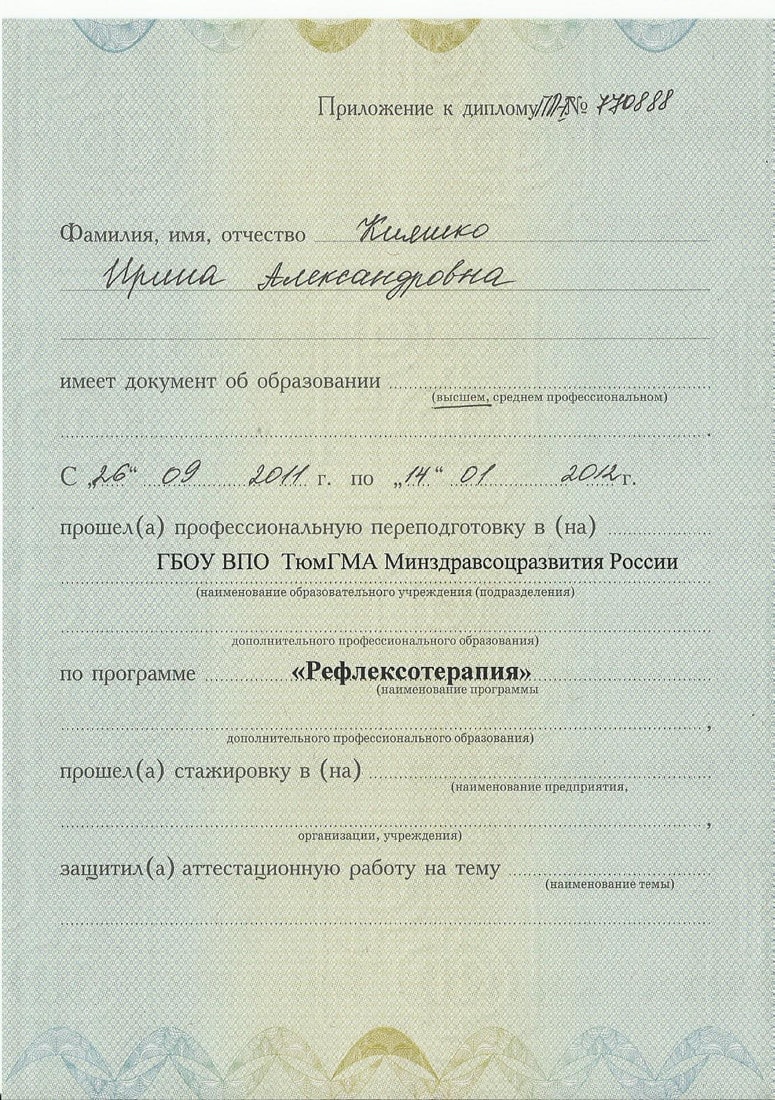 Приложение к диплому ПП-I № 770888
Фамилия, имя, отчество Кияшко
Ирина Александровна
имеет документ об образовании
(высшем, среднем профессиональном)
С „26“ 09 2011 г. по „14“ 01 2012 г.
прошел(а) профессиональную переподготовку в (на)
ГБОУ ВПО ТюмГМА Минздравсоцразвития России
(наименование образовательного учреждения (подразделения)
дополнительного профессионального образования)
по программе «Рефлексотерапия»
(наименование программы
дополнительного профессионального образования) ,
прошел(а) стажировку в (на)
(наименование предприятия,
организации, учреждения) ,
защитил(а) аттестационную работу на тему
(наименование темы)